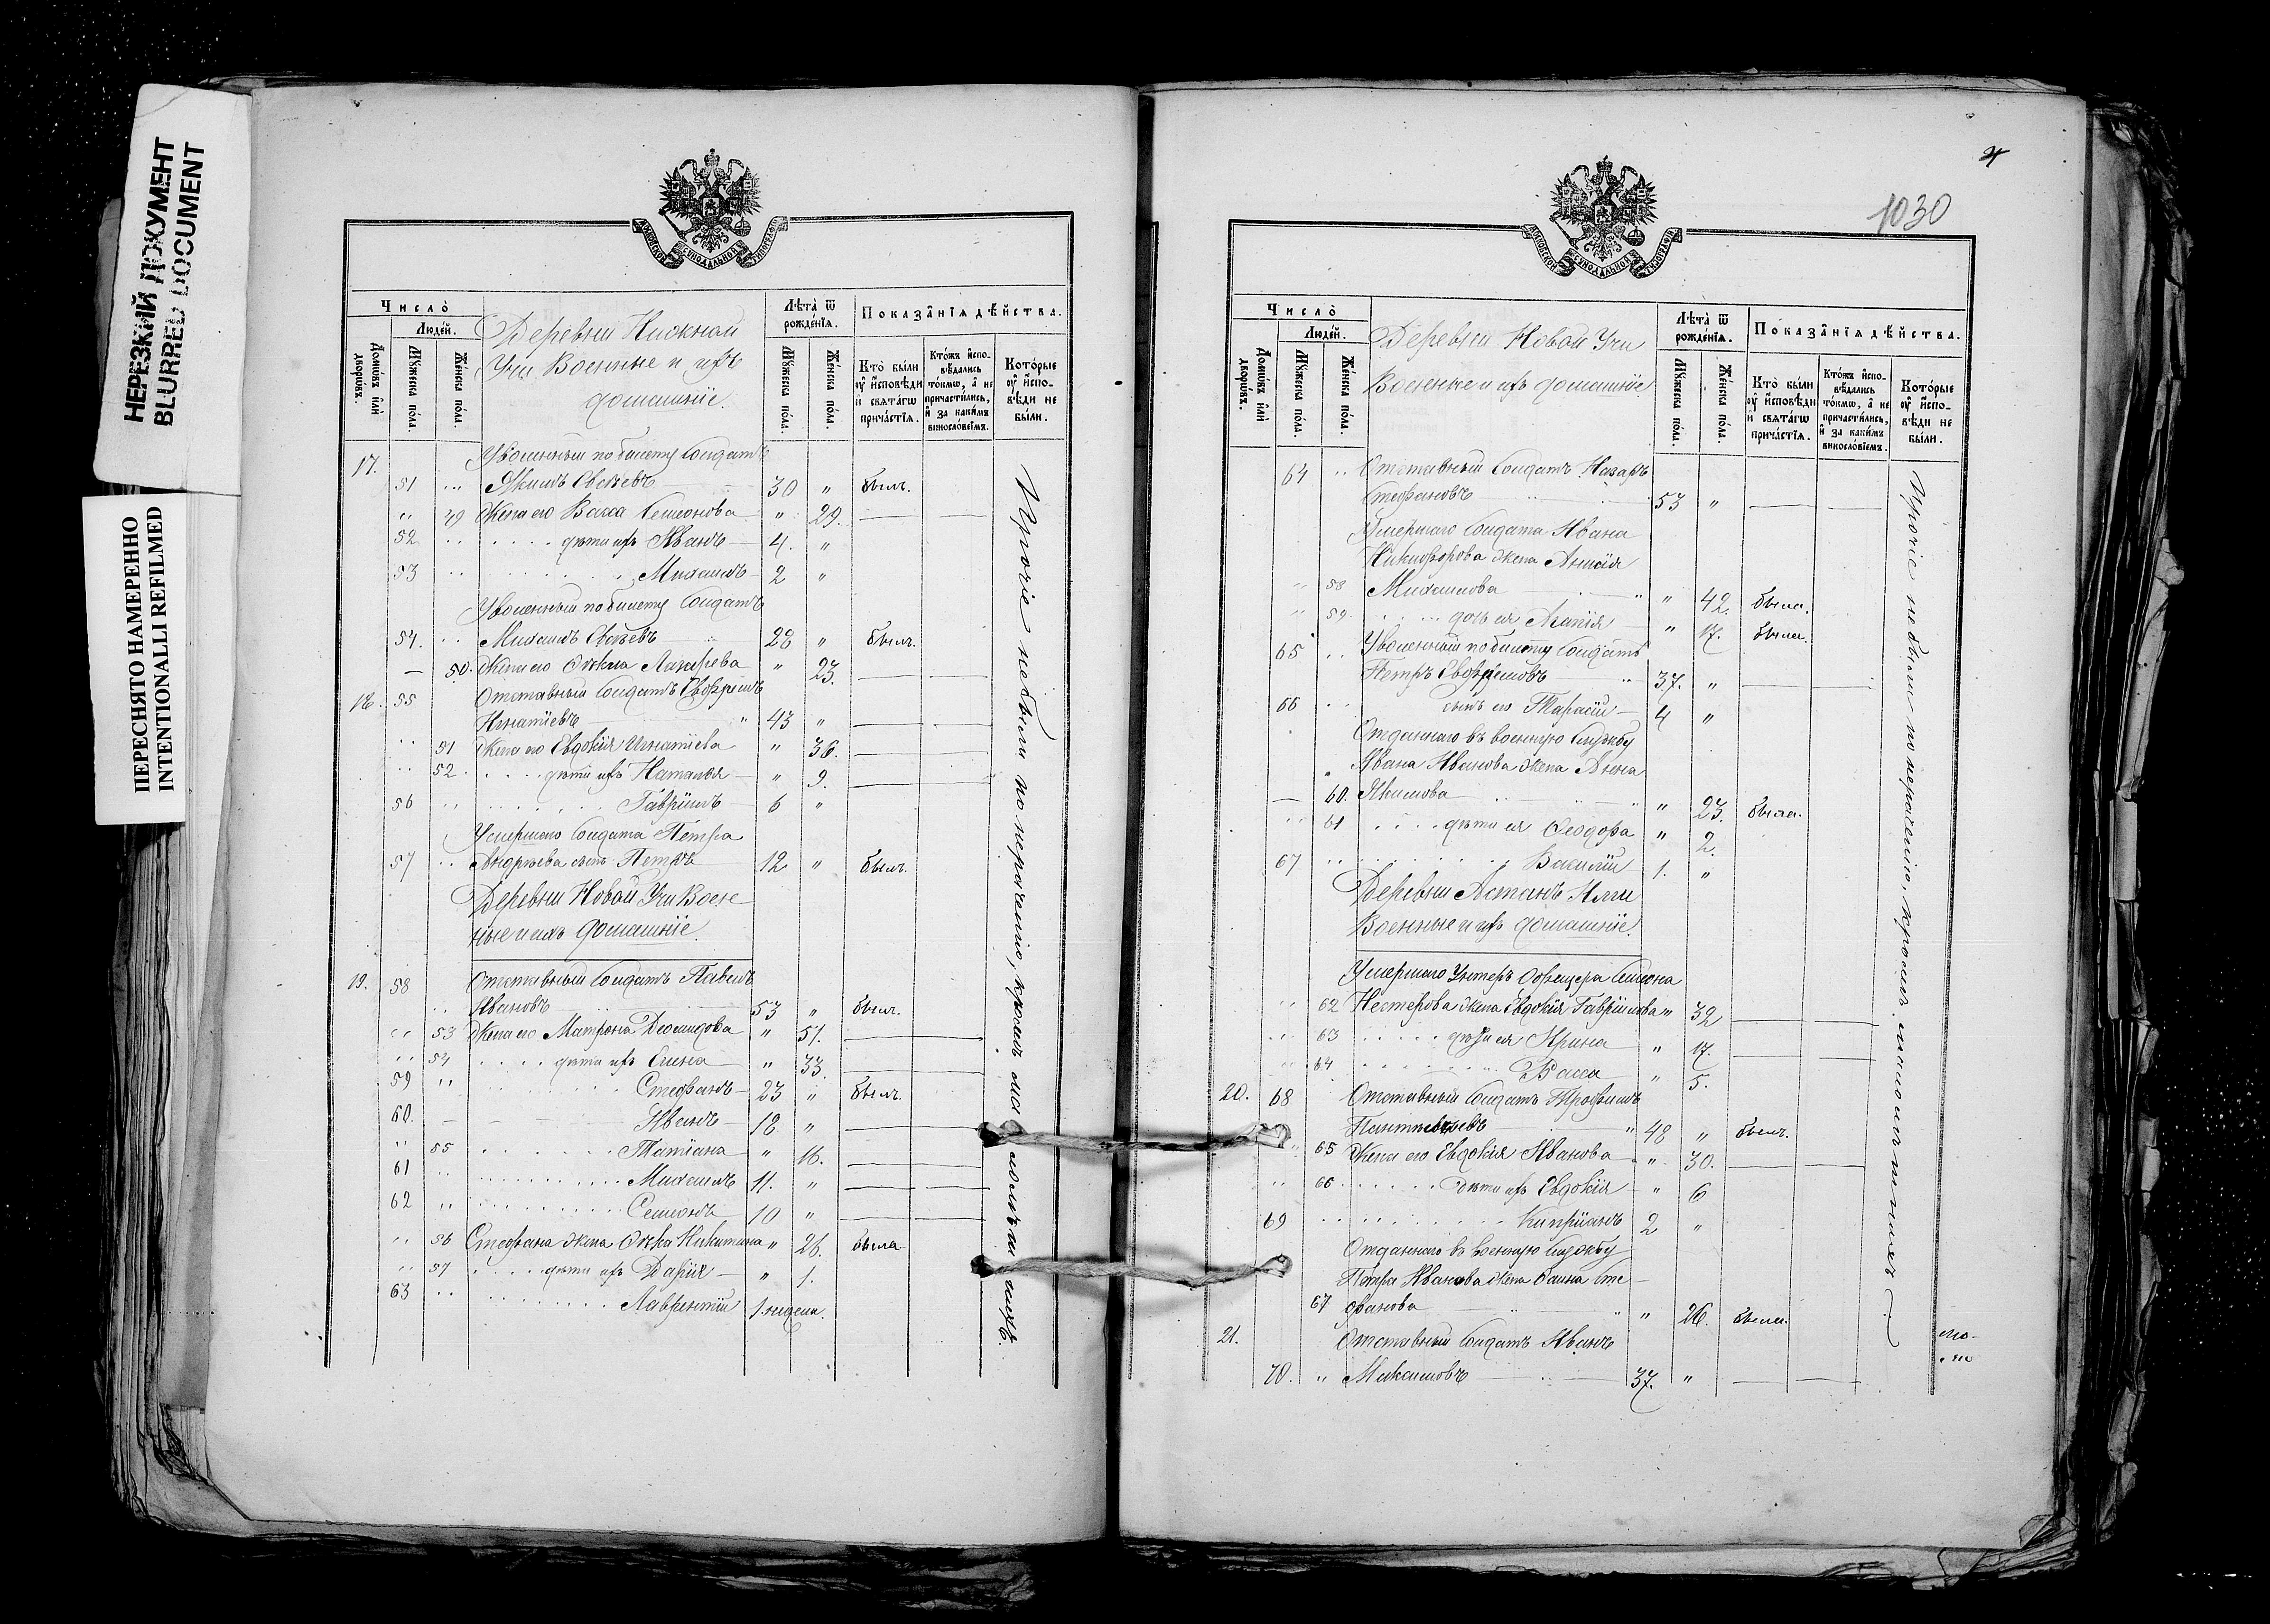 НЕРЕЗКИЙ ДОКУМЕНТ
BLURRED DOCUMENT
ПЕРЕСНЯТО НАМЕРЕННО
INTENTIONALLI REFILMED
МОСКОВСКОЙ СѴНОДАЛЬНОЙ ТИПОГРАФIИ
Число̀
Люде́й.
Домѡ́въ и҆лѝ дворѡ́въ.
Мꙋ́жеска по́ла.
Же́нска по́ла.
Деревни Нижней
Учи Военные и ихъ
домашніе.
Лѣта̀ ѿ рожде́нїѧ.
Мꙋ́жеска по́ла.
Же́нска по́ла.
Показа̑нїѧ дѣ́йства.
Кто̀ бы́ли оу҆ и҆сповѣ́ди и҆ свѧта́гѡ прича́стїѧ.
Кто́жъ и҆спо-вѣ́дались то́кмѡ, а҆ не причасти́лись, и҆ за каки́мъ винословїемъ.
Кото́рые оу҆ и҆спо-вѣ́ди не бы́ли.
17. Уволенный по билету Солдатъ
51 Якимъ Евсѣевъ 30 " былъ.
" 49 Жена его Васса Семионова " 29.
52 дѣти ихъ Иванъ 4. "
53 Михаилъ 2 "
Уволенный по билету Солдатъ
54. Михаилъ Евсѣевъ 28 " былъ.
50. Жена его Ѳекла Лазарева " 23.
18. 55 Отставный Солдатъ Евфремъ
Игнатіевъ 43 "
51 Жена его Евдокія Игнатіева " 36.
52 дѣти ихъ Наталья " 9.
56 Гавріилъ 6 "
Умершаго Солдата Петра
57 Андреева сынъ Петръ 12 " былъ.
Деревни Новой Учи Воен-
ные и ихъ домашніе.
19. 58 Отставный Солдатъ Павелъ
Ивановъ 53 " былъ.
53 Жена его Матрона Діомидова " 51.
54 дѣти ихъ " 33.
59 Стефанъ 23 " былъ.
60. Иванъ 18 "
55 Татіана " 16.
61 Михаилъ 11. "
62 Семионъ 10 "
56 Стефана жена Никитина " 26. была.
57 дѣти ихъ Дарія " 1.
63 Лаврентій 1. недели.
Прочіе не были по нераченію, кромѣ малолѣтнихъ.
1030
МОСКОВСКОЙ СѴНОДАЛЬНОЙ ТИПОГРАФIИ
Число̀
Люде́й.
Домѡ́въ и҆лѝ дворѡ́въ.
Мꙋ́жеска по́ла.
Же́нска по́ла.
Деревни Новой Учи
Военные и ихъ домашніе.
Лѣта̀ ѿ рожде́нїѧ.
Мꙋ́жеска по́ла.
Же́нска по́ла.
Показа̑нїѧ дѣ́йства.
Кто̀ бы́ли оу҆ и҆сповѣ́ди и҆ свѧта́гѡ прича́стїѧ.
Кто́жъ и҆спо-вѣ́дались то́кмѡ, а҆ не причасти́лись, и҆ за каки́мъ винословїемъ.
Кото́рые оу҆ и҆спо-вѣ́ди не бы́ли.
64 Отставный Солдатъ Назаръ
Стефановъ 53 "
Умершаго Солдата Ивана
Никифорова жена Анисія
58 Михаилова " 42. была.
59. дочь ея " 17. была.
65 Уволенный по билету Солдатъ
Петръ Евфремовъ 37. "
66 сынъ его Тарасій 4 "
Отданнаго въ военную службу
Ивана Иванова жена Анна
60. Якимова " 23. была.
61 дѣти ея Ѳеодора " 2.
67 Василій 1. "
Деревни Астанъ Илги
Военные и ихъ домашніе.
Умершаго Унтеръ Офицера Симеона
62 Нестерова жена Евдокія Гавріилова " 32
63 дѣти ея Ирина " 17.
64 Васса " 5.
20. 68 Отставный Солдатъ Трофимъ
Пантилеевъ 48 " былъ.
65 Жена его Евдокія Иванова " 30.
66 дѣти ихъ Евдокія " 6
69 Кипріанъ 2 "
Отданнаго въ военную службу
Петра Иванова жена Сте-
67 фанова " 26. была.
21. Отставный Солдатъ Иванъ
70. Максимовъ 37. "
Прочіе не были по нераченію, кромѣ малолѣтнихъ.